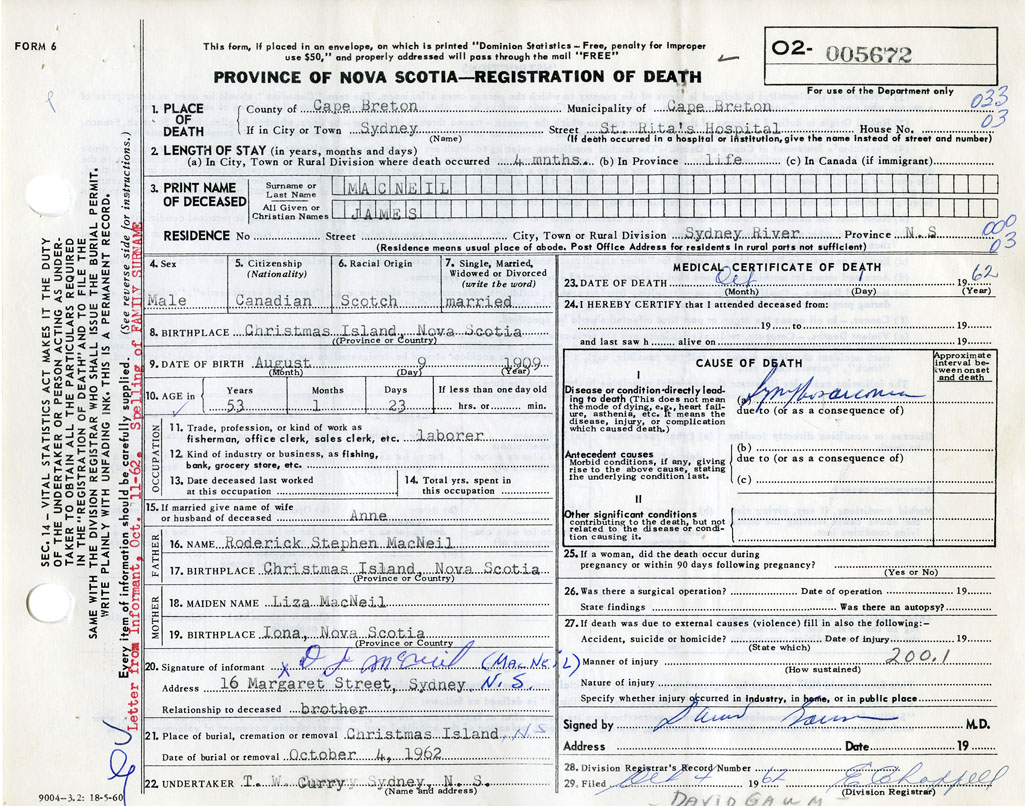 FORM 6
This form, if placed in an envelope, on which is printed "Dominion Statistics – Free, penalty for improper
use $50," and properly addressed will pass through the mail "FREE"
PROVINCE OF NOVA SCOTIA—REGISTRATION OF DEATH
O2- 005672
For use of the Department only
033
03
1. PLACE OF DEATH
County of Cape Breton Municipality of Cape Breton
If in City or Town Sydney Street St. Rita's Hospital House No.
(Name) (If death occurred in a hospital or institution, give the name instead of street and number)
2. LENGTH OF STAY (in years, months and days)
(a) In City, Town or Rural Division where death occurred 4 mnths. (b) In Province life (c) In Canada (if immigrant)
3. PRINT NAME OF DECEASED
Surname or Last Name MACNEIL
All Given or Christian Names JAMES
000
03
RESIDENCE No Street City, Town or Rural Division Sydney River Province N.S
(Residence means usual place of abode. Post Office Address for residents in rural parts not sufficient)
4. Sex
Male
5. Citizenship (Nationality)
Canadian
6. Racial Origin
Scotch
7. Single, Married, Widowed or Divorced (write the word)
married
8. BIRTHPLACE Christmas Island, Nova Scotia
(Province or Country)
9. DATE OF BIRTH August 9 1909
(Month) (Day) (Year)
10. AGE in
Years Months Days If less than one day old
53 1 23 hrs. or min.
OCCUPATION
11. Trade, profession, or kind of work as
fisherman, office clerk, sales clerk, etc. laborer
12. Kind of industry or business, as fishing,
bank, grocery store, etc.
13. Date deceased last worked
at this occupation
14. Total yrs. spent in
this occupation
15. If married give name of wife
or husband of deceased Anne
FATHER
16. NAME Roderick Stephen MacNeil
17. BIRTHPLACE Christmas Island, Nova Scotia
(Province or Country)
MOTHER
18. MAIDEN NAME Liza MacNeil
19. BIRTHPLACE Iona, Nova Scotia
(Province or Country
20. Signature of informant x D J McNeil (MacNeil)
Address 16 Margaret Street, Sydney N.S.
Relationship to deceased brother
21. Place of burial, cremation or removal Christmas Island, N S
Date of burial or removal October 4, 1962
22. UNDERTAKER T. W. Curry Sydney, N. S.
(Name and address)
9004–3.2: 18-5-60
MEDICAL CERTIFICATE OF DEATH
23. DATE OF DEATH Oct 1 19 62
(Month) (Day) (Year)
24. I HEREBY CERTIFY that I attended deceased from:
19 to 19
and last saw h alive on 19
CAUSE OF DEATH
Approximate interval between onset and death
I
Disease or condition directly leading to death (This does not mean
the mode of dying, e.g., heart failure, asthenia, etc. It means the
disease, injury, or complication
which caused death.)
(a) Lymphosarcoma
due to (or as a consequence of)
Antecedent causes
Morbid conditions, if any, giving
rise to the above cause, stating
the underlying condition last.
(b)
due to (or as a consequence of)
(c)
II
Other significant conditions
contributing to the death, but not
related to the disease or condition causing it.
25. If a woman, did the death occur during
pregnancy or within 90 days following pregnancy?
(Yes or No)
26. Was there a surgical operation? Date of operation 19
State findings Was there an autopsy?
27. If death was due to external causes (violence) fill in also the following:–
Accident, suicide or homicide? Date of injury 19
(State which)
200.1
Manner of injury
(How sustained)
Nature of injury
Specify whether injury occurred in industry, in home, or in public place
Signed by David Gaum M.D.
Address Date 19
28. Division Registrar's Record Number
29. Filed Oct 4 19 62 E Chappell
(Division Registrar)
DAVID GAUM
SEC. 14 – VITAL STATISTICS ACT MAKES IT THE DUTY
OF THE UNDERTAKER OR PERSON ACTING AS UNDERTAKER TO OBTAIN ALL THE PARTICULARS REQUIRED
IN THE "REGISTRATION OF DEATH" AND TO FILE THE
SAME WITH THE DIVISION REGISTRAR WHO SHALL ISSUE THE BURIAL PERMIT.
WRITE PLAINLY WITH UNFADING INK. THIS IS A PERMANENT RECORD.
Every item of information should be carefully supplied. (See reverse side for instructions.)
Letter from Informant, Oct., 11-62. Spelling of FAMILY SURNAME